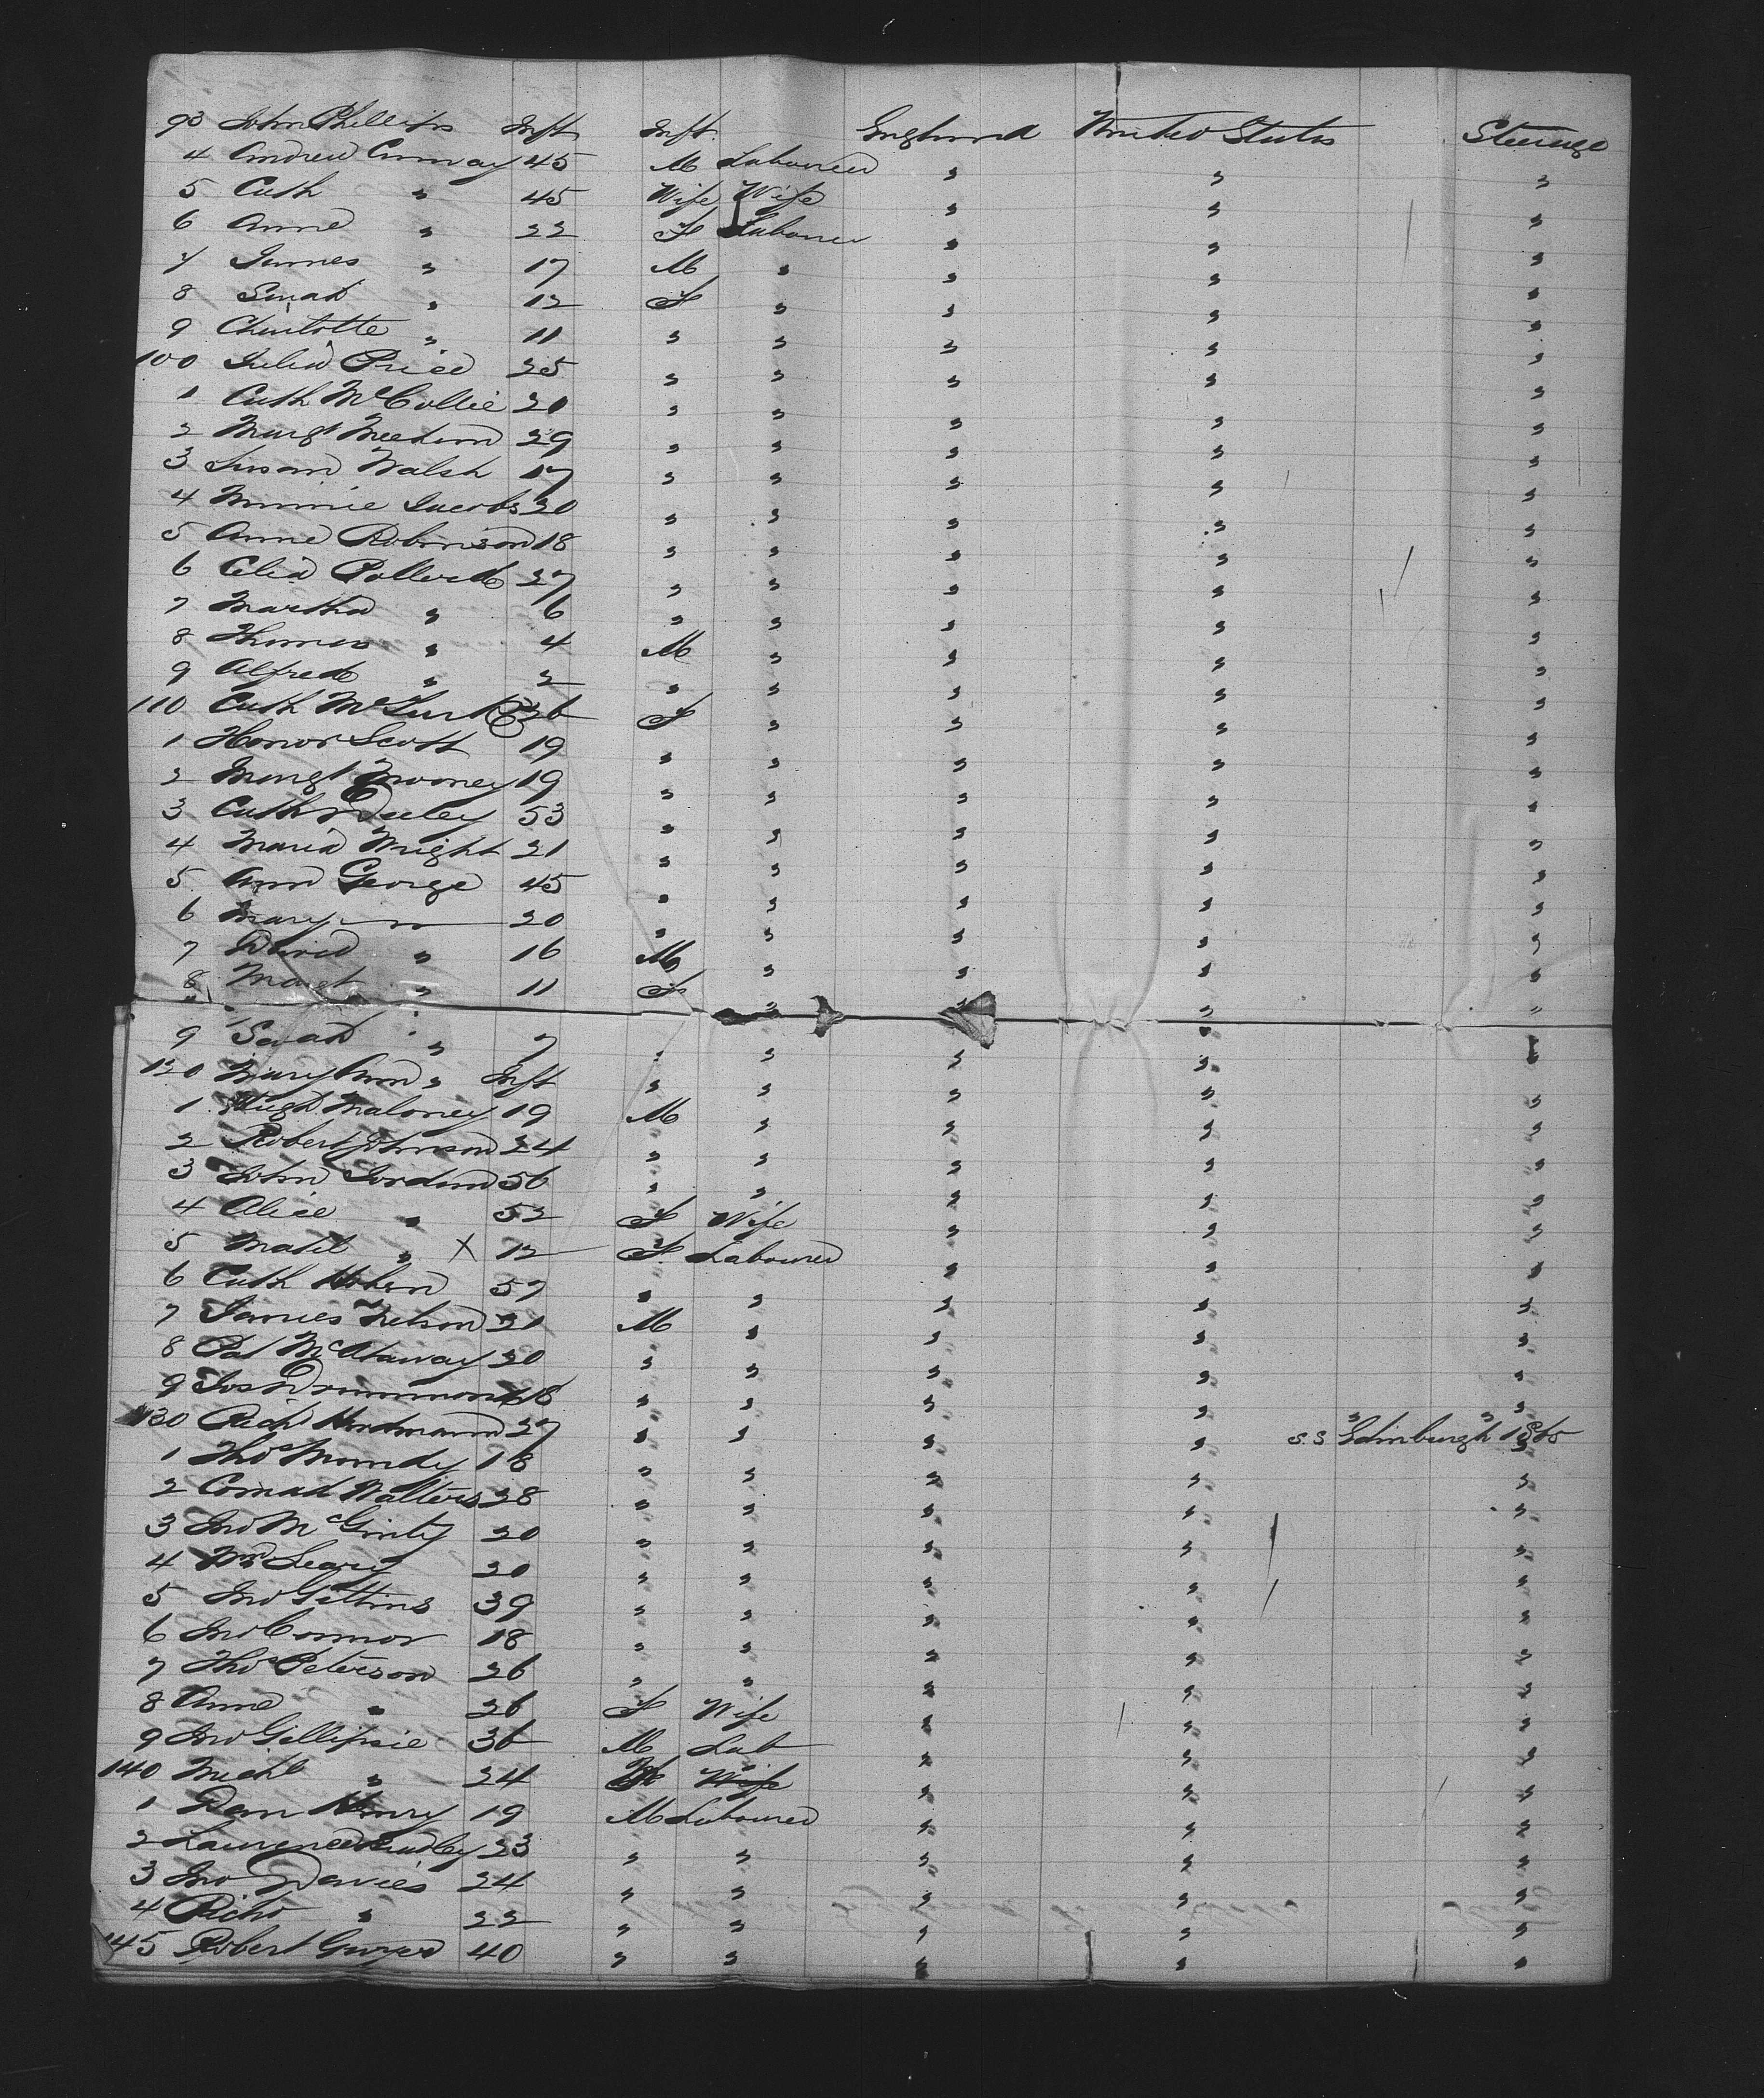 93 John Phillips Inft Inft England United States Steerage
4 Andrew Conway 45 M Labourer " " "
5 Cath " 45 Wife Wife " " "
6 Anne " 22 F Labourer " " "
7 James " 17 M " " " "
8 Sarah " 12 F " " " "
9 Charlotte " 11 " " " " "
100 Julia Price 25 " " " " "
1 Cath McCollie 20 " " " " "
2 Margt 29 " " " " "
3 Susan Walsh 17 " " " " "
4 Minnie Jacobs 20 " " " " "
5 Anne Robinson 18 " " " " "
6 Celia Pollard 27 " " " " "
7 Martha " 6 " " " " "
8 Thomas " 4 M " " " "
9 Alfred " 2 " " " " "
110 Cath 26 F " " " "
1 Honor Scott 19 " " " " "
2 Margt Mooney 19 " " " " "
3 Cath Deeley 53 " " " " "
4 Maria Wright 21 " " " " "
5 Ann George 45 " " " " "
6 Mary " 20 " " " " "
7 David " 16 M " " " "
8 Margt " 11 F " " " "
9 Sarah " 7 " " " " "
120 Mary Ann " Inft " " " " "
1 Hugh Maloney 19 M " " " "
2 Robert Johnson 24 " " " " "
3 John Jordan 56 " " " " "
4 Alice " 52 F Wife " " "
5 Matil " X 12 F Labourer " " "
6 Cath 57 " " " " "
7 James Nelson 21 M " " " "
8 Pat 20 " " " " "
9 Jos Drummond 18 " " " " "
130 Richd Hardman 27 " " " " S.S Edinburgh 1 Sts
1 Thos Mundy 18 " " " " "
2 Conrad Walters 28 " " " " "
3 Jno McGinty 20 " " " " "
4 Wm Leary 20 " " " " "
5 Jno Gittins 39 " " " " "
6 Jno Connor 18 " " " " "
7 Thos Peterson 26 " " " " "
8 Anne " 26 F Wife " " "
9 Jno Gillipsie 36 M Lab " " "
140 Michl " 24 M Wife " " "
1 Dan Henry 19 M Labourer " " "
2 Laurence 23 " " " " "
3 Jno Davies 24 " " " " "
4 Richd " 22 " " " " "
145 Robert 40 " " " " "